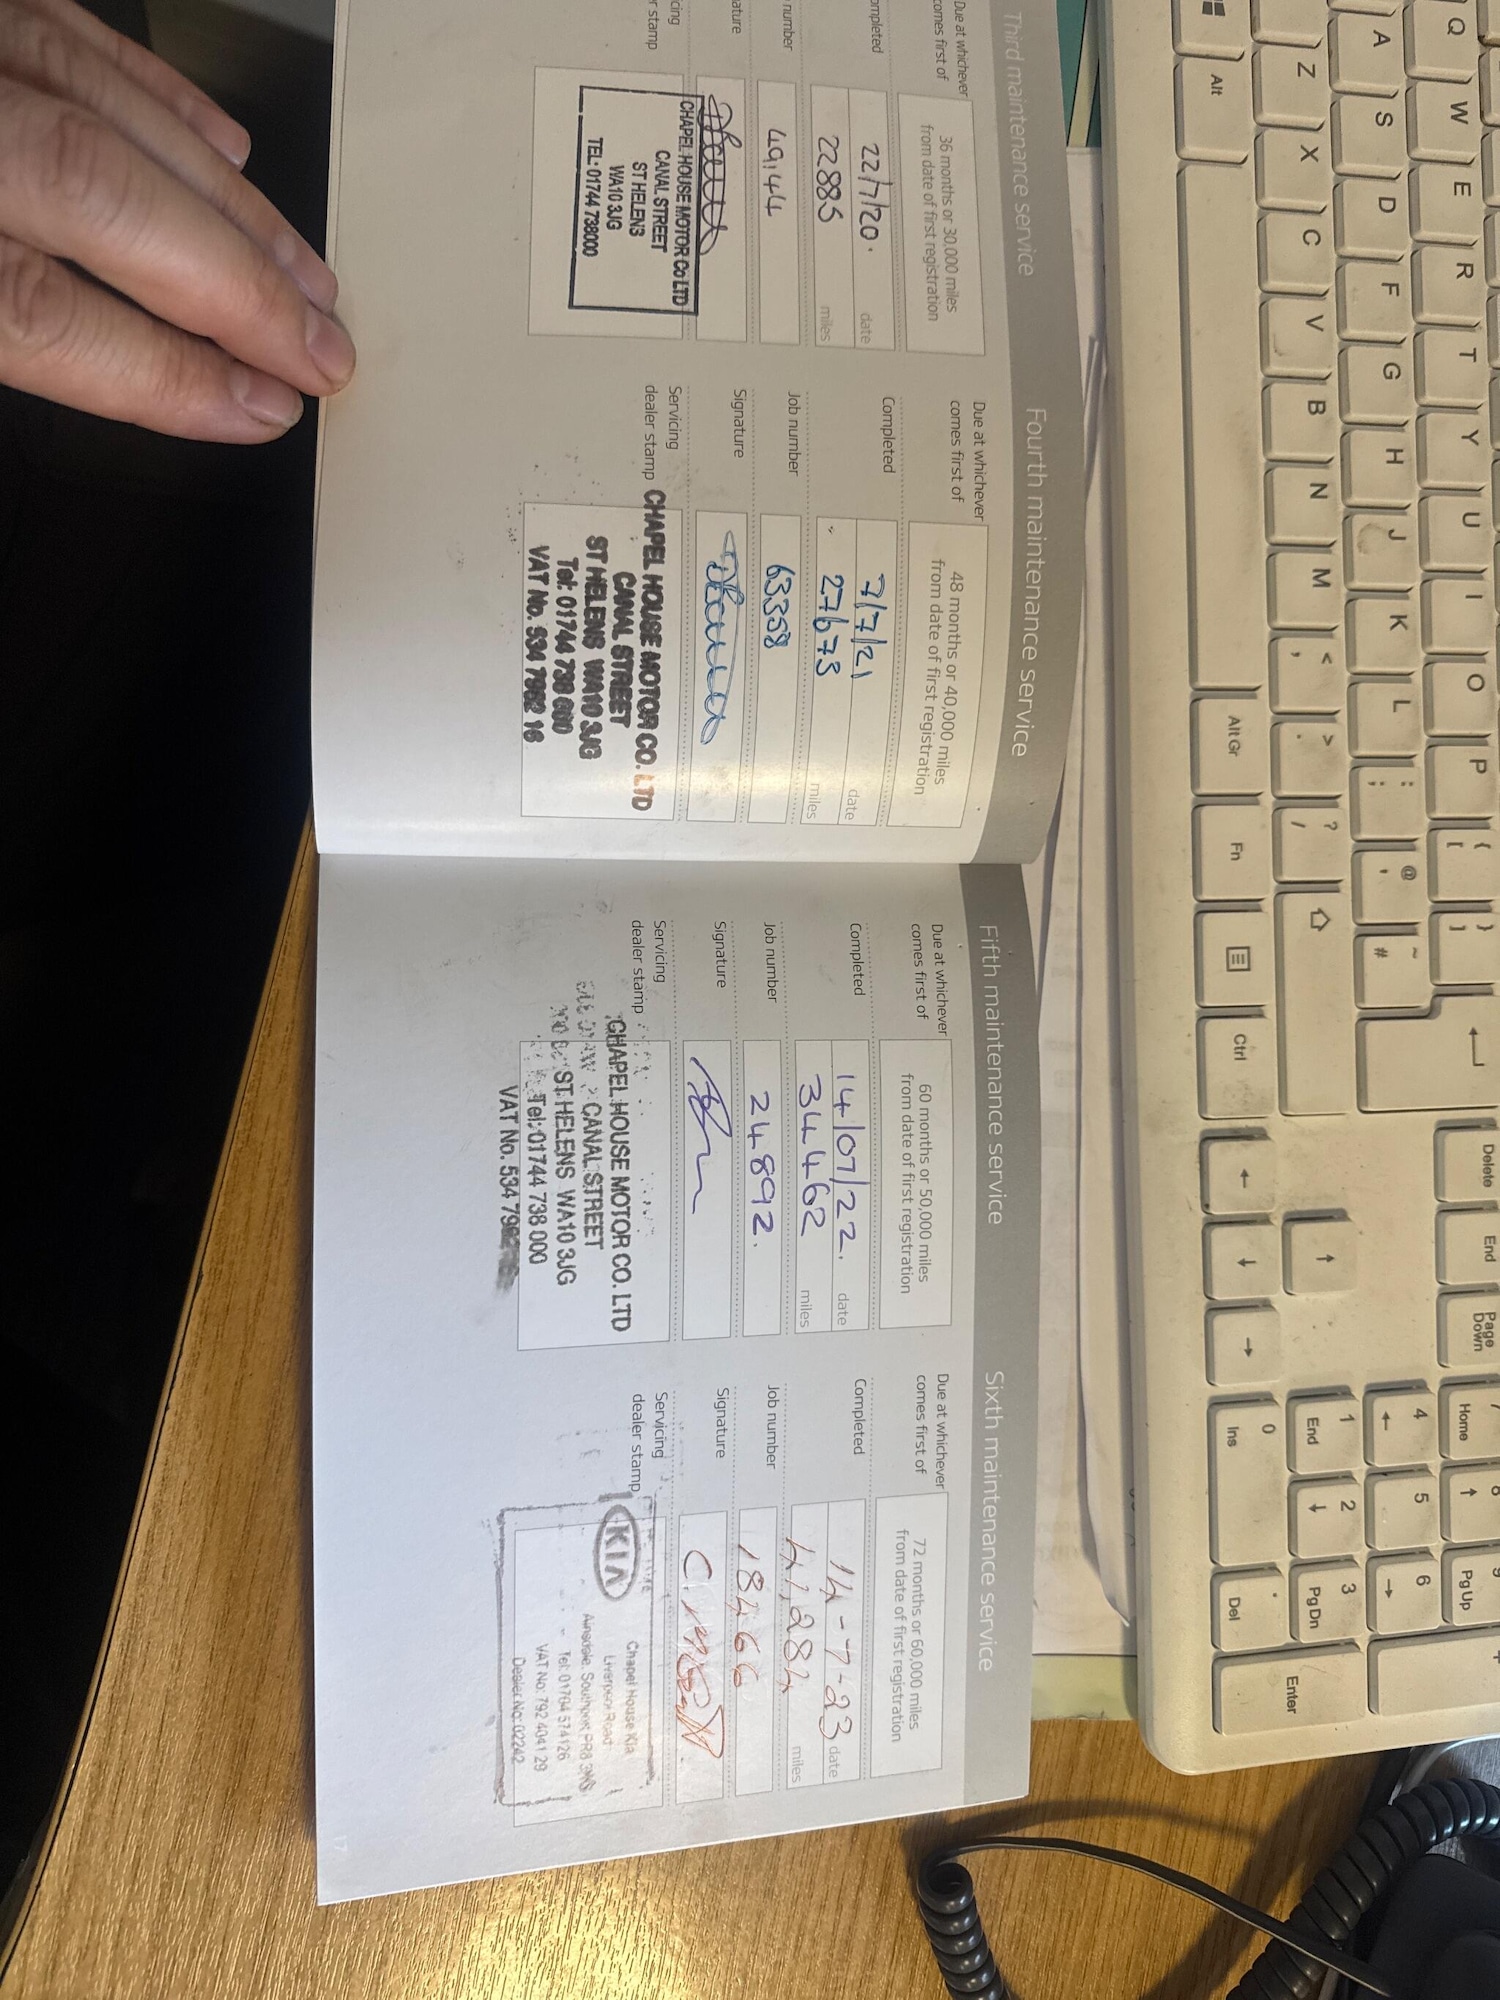 Third maintenance service
Due at whichever
comes first of
36 months or 30,000 miles
from date of first registration
ompleted
22/7/20.
date
22885
miles
number
49144
ature
cing
r stamp
CHAPEL HOUSE MOTOR Co LTD
CANAL STREET
ST HELENS
WA10 3JG
TEL: 01744 738000
Fourth maintenance service
Due at whichever
comes first of
48 months or 40,000 miles
from date of first registration
Completed
7/7/21
date
27673
miles
Job number
63358
Signature
Servicing
dealer stamp
CHAPEL HOUSE MOTOR CO. LTD
CANAL STREET
ST HELENS WA10 3JG
Tel: 01744 738 000
VAT No. 534 7962 16
Fifth maintenance service
Due at whichever
comes first of
60 months or 50,000 miles
from date of first registration
Completed
14/07/22.
date
34462
miles
Job number
24892.
Signature
Servicing
dealer stamp
CHAPEL HOUSE MOTOR CO. LTD
CANAL STREET
ST HELENS WA10 3JG
Tel: 01744 738 000
VAT No. 534 79
Sixth maintenance service
Due at whichever
comes first of
72 months or 60,000 miles
from date of first registration
Completed
14-7-23
date
41,284
miles
Job number
18466
Signature
Servicing
dealer stamp
KIA
Chapel House Kia
Liverpool Road
Ainsdale, Southport PR8 3NS
Tel: 01704 574126
VAT No: 792 4041 29
Dealer No: 02242
17
Q W E R T Y U I O P { [ } ]
A S D F G H J K L : ; @ ' ~ #
Z X C V B N M < , > . ? /
Alt
Alt Gr
Fn
Ctrl
Delete
End
Page Down
7 Home
8
9 PgUp
4
5
6
1 End
2
3 PgDn
Enter
0 Ins
. Del
+